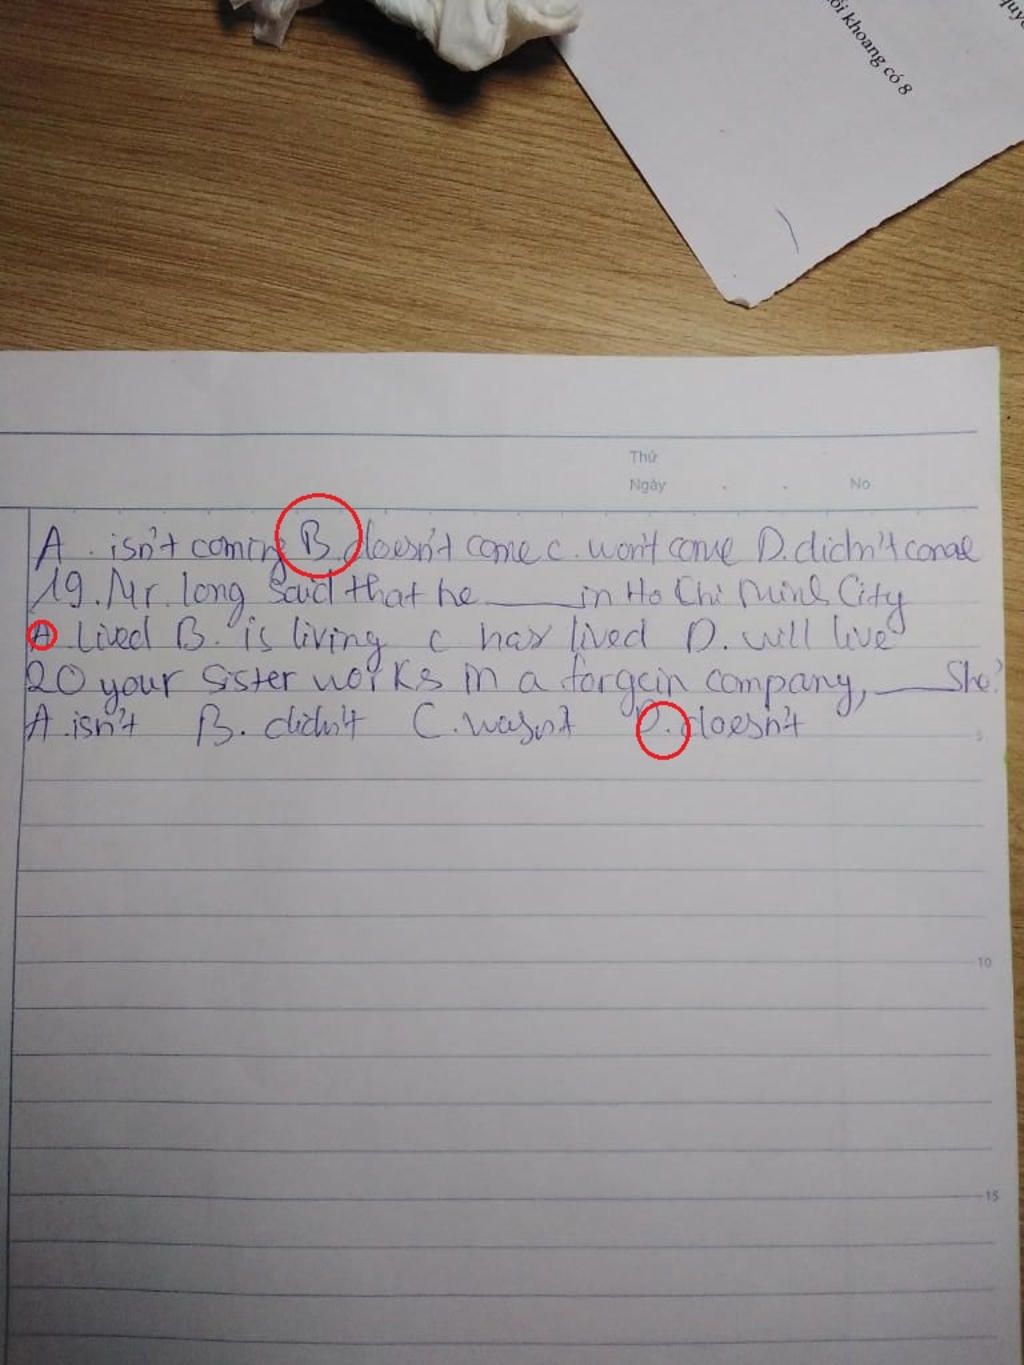 quy
ôi khoang có 8
Thứ
Ngày . . No
A. isn't coming B. doesn't come c. won't come D. didn't come
19. Mr. long said that he ____ in Ho Chi Minh City
A Lived B. is living c has lived D. will live
20 your sister works in a forgein company, ____ She?
A. isn't B. didn't C. wasn't D. doesn't
5
10
15